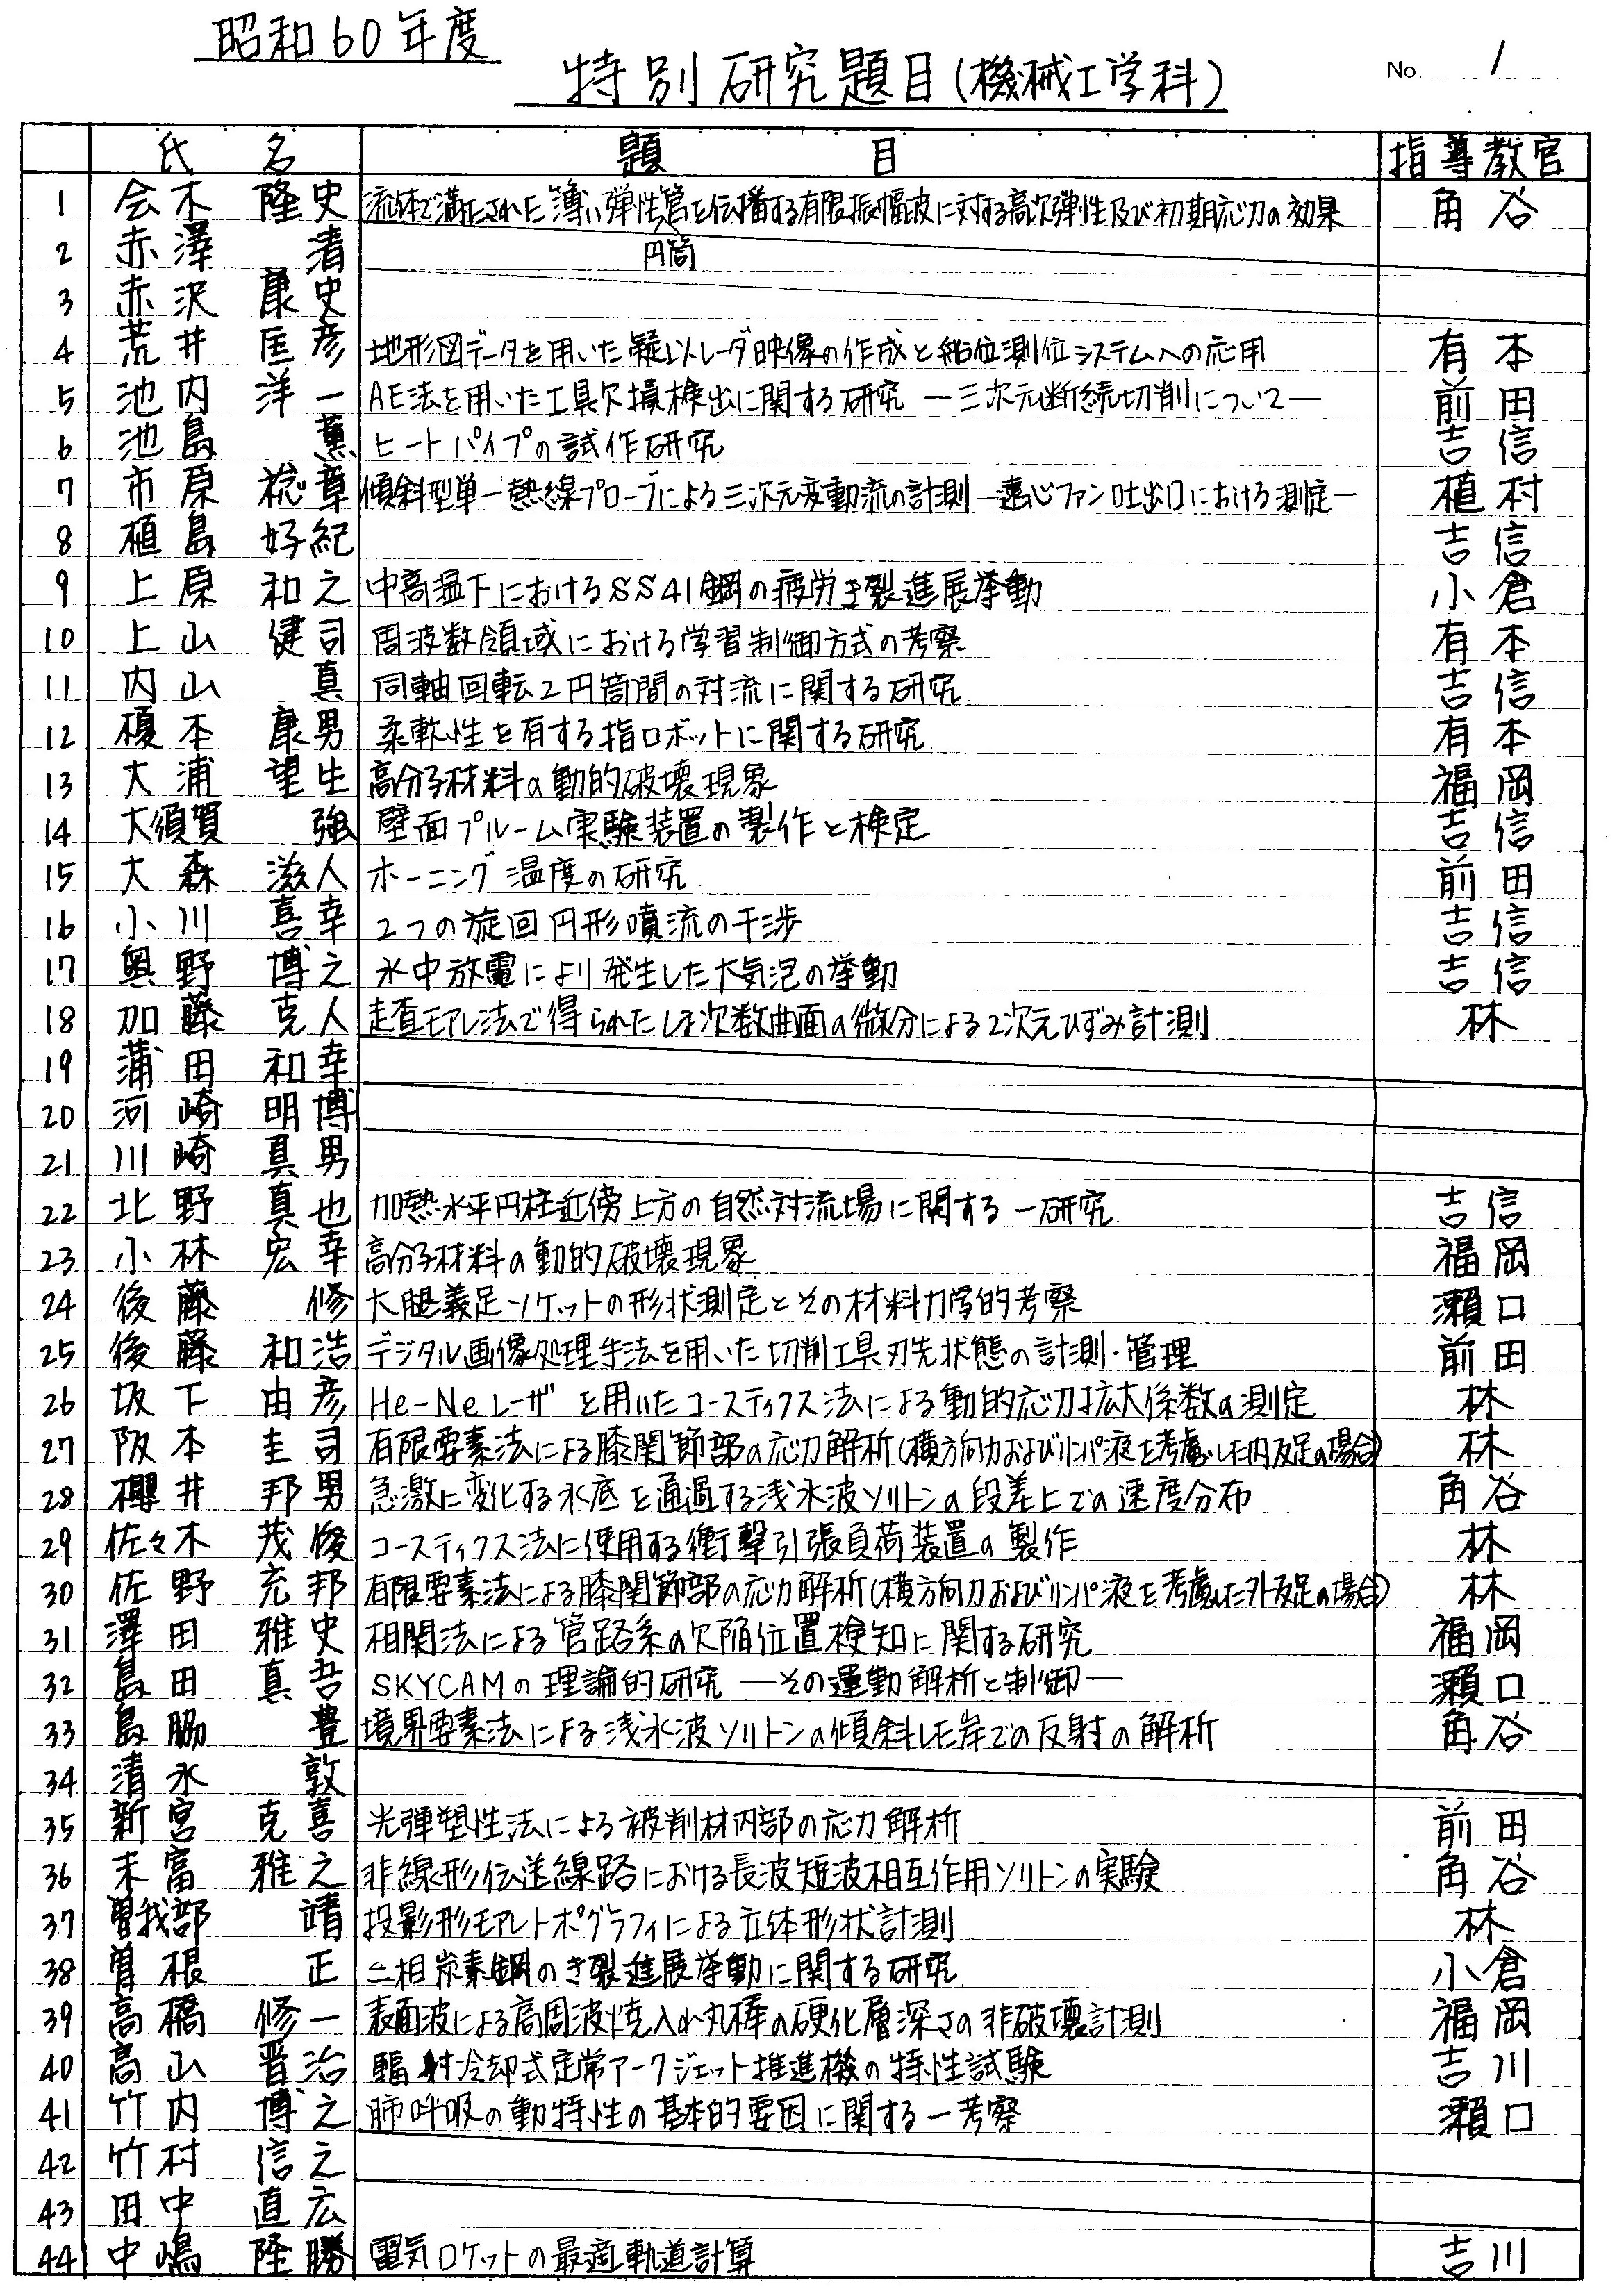 昭和60年度
特別研究題目(機械工学科)
No. 1
氏名 題目 指導教官
1 会木 隆史 流体で満たされた薄い弾性管を伝播する有限振幅波に対する高次弾性及び初期応力の効果 角谷
円筒
2 赤澤 清
3 赤沢 康史
4 荒井 匡彦 地形図データを用いた疑似レーダ映像の作成と船位測位システムへの応用 有本
5 池内 洋一 AE法を用いた工具欠損検出に関する研究 ―三次元断続切削について― 前田
6 池島 薫 ヒートパイプの試作研究 吉信
7 市原 稔章 傾斜型単一熱線プローブによる三次元変動流の計測 ―遠心ファン吐出口における測定― 植村
8 植島 好紀 吉信
9 上原 和之 中高温下におけるSS41鋼の疲労き裂進展挙動 小倉
10 上山 健司 周波数領域における学習制御方式の考察 有本
11 内山 真 同軸回転2円筒間の対流に関する研究 吉信
12 榎本 康男 柔軟性を有する指ロボットに関する研究 有本
13 大浦 望生 高分子材料の動的破壊現象 福岡
14 大須賀 強 壁面プルーム実験装置の製作と検定 吉信
15 大森 滋人 ホーニング温度の研究 前田
16 小川 喜幸 2つの旋回円形噴流の干渉 吉信
17 奥野 博之 水中放電により発生した大気泡の挙動 吉信
18 加藤 克人 走査モアレ法で得られたしま次数曲面の微分による2次元ひずみ計測 林
19 蒲田 和幸
20 河崎 明博
21 川崎 真男
22 北野 真也 加熱水平円柱近傍上方の自然対流場に関する一研究 吉信
23 小林 宏幸 高分子材料の動的破壊現象 福岡
24 後藤 修 大腿義足ソケットの形状測定とその材料力学的考察 瀬口
25 後藤 和浩 デジタル画像処理手法を用いた切削工具刃先状態の計測・管理 前田
26 坂下 由彦 He-Neレーザを用いたコースティクス法による動的応力拡大係数の測定 林
27 阪本 圭司 有限要素法による膝関節部の応力解析(横方向力およびリンパ液を考慮した内反足の場合) 林
28 櫻井 邦男 急激に変化する水底を通過する浅水波ソリトンの段差上での速度分布 角谷
29 佐々木 茂俊 コースティクス法に使用する衝撃引張負荷装置の製作 林
30 佐野 充邦 有限要素法による膝関節部の応力解析(横方向力およびリンパ液を考慮した外反足の場合) 林
31 澤田 雅史 相関法による管路系の欠陥位置検知に関する研究 福岡
32 島田 真吾 SKYCAMの理論的研究 ―その運動解析と制御― 瀬口
33 島脇 豊 境界要素法による浅水波ソリトンの傾斜した岸での反射の解析 角谷
34 清水 敦
35 新宮 克喜 光弾塑性法による被削材内部の応力解析 前田
36 末富 雅之 非線形伝送線路における長波短波相互作用ソリトンの実験 角谷
37 曽我部 靖 投影形モアレトポグラフィによる立体形状計測 林
38 曽根 正 二相炭素鋼のき裂進展挙動に関する研究 小倉
39 高橋 修一 表面波による高周波焼入れ丸棒の硬化層深さの非破壊計測 福岡
40 高山 晋治 輻射冷却式定常アークジェット推進機の特性試験 吉川
41 竹内 博之 肺呼吸の動特性の基本的要因に関する一考察 瀬口
42 竹村 信之
43 田中 直広
44 中嶋 隆勝 電気ロケットの最適軌道計算 吉川